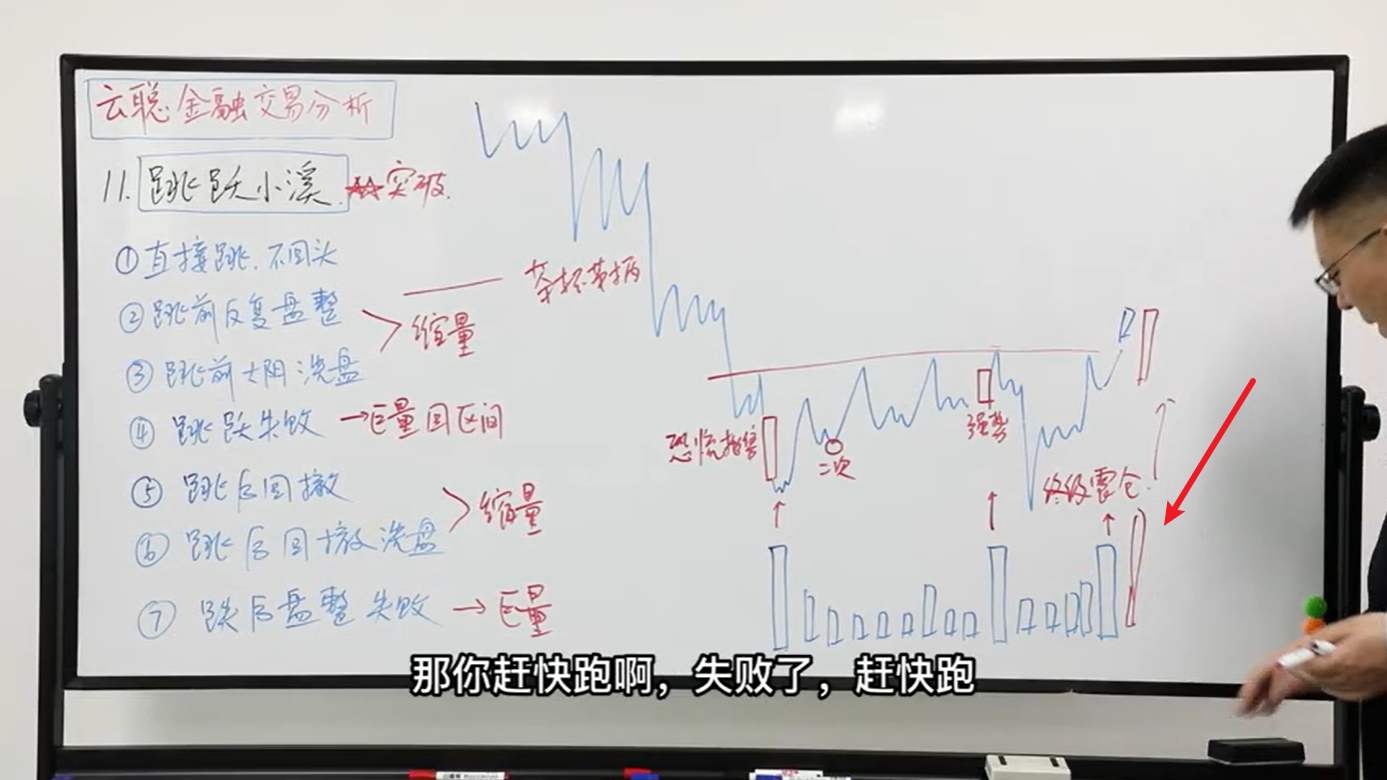 云聪金融交易分析
11. 跳跃小溪 突破.
①直接跳.不回头
②跳前反复盘整
③跳前大阴洗盘
缩量
④跳跃失败 →巨量回区间
⑤跳后回撤
⑥跳后回撤洗盘
缩量
⑦跌后盘整失败 → 巨量
茶杯带柄
恐慌抛售
二次
强势
终级震仓.
那你赶快跑啊，失败了，赶快跑